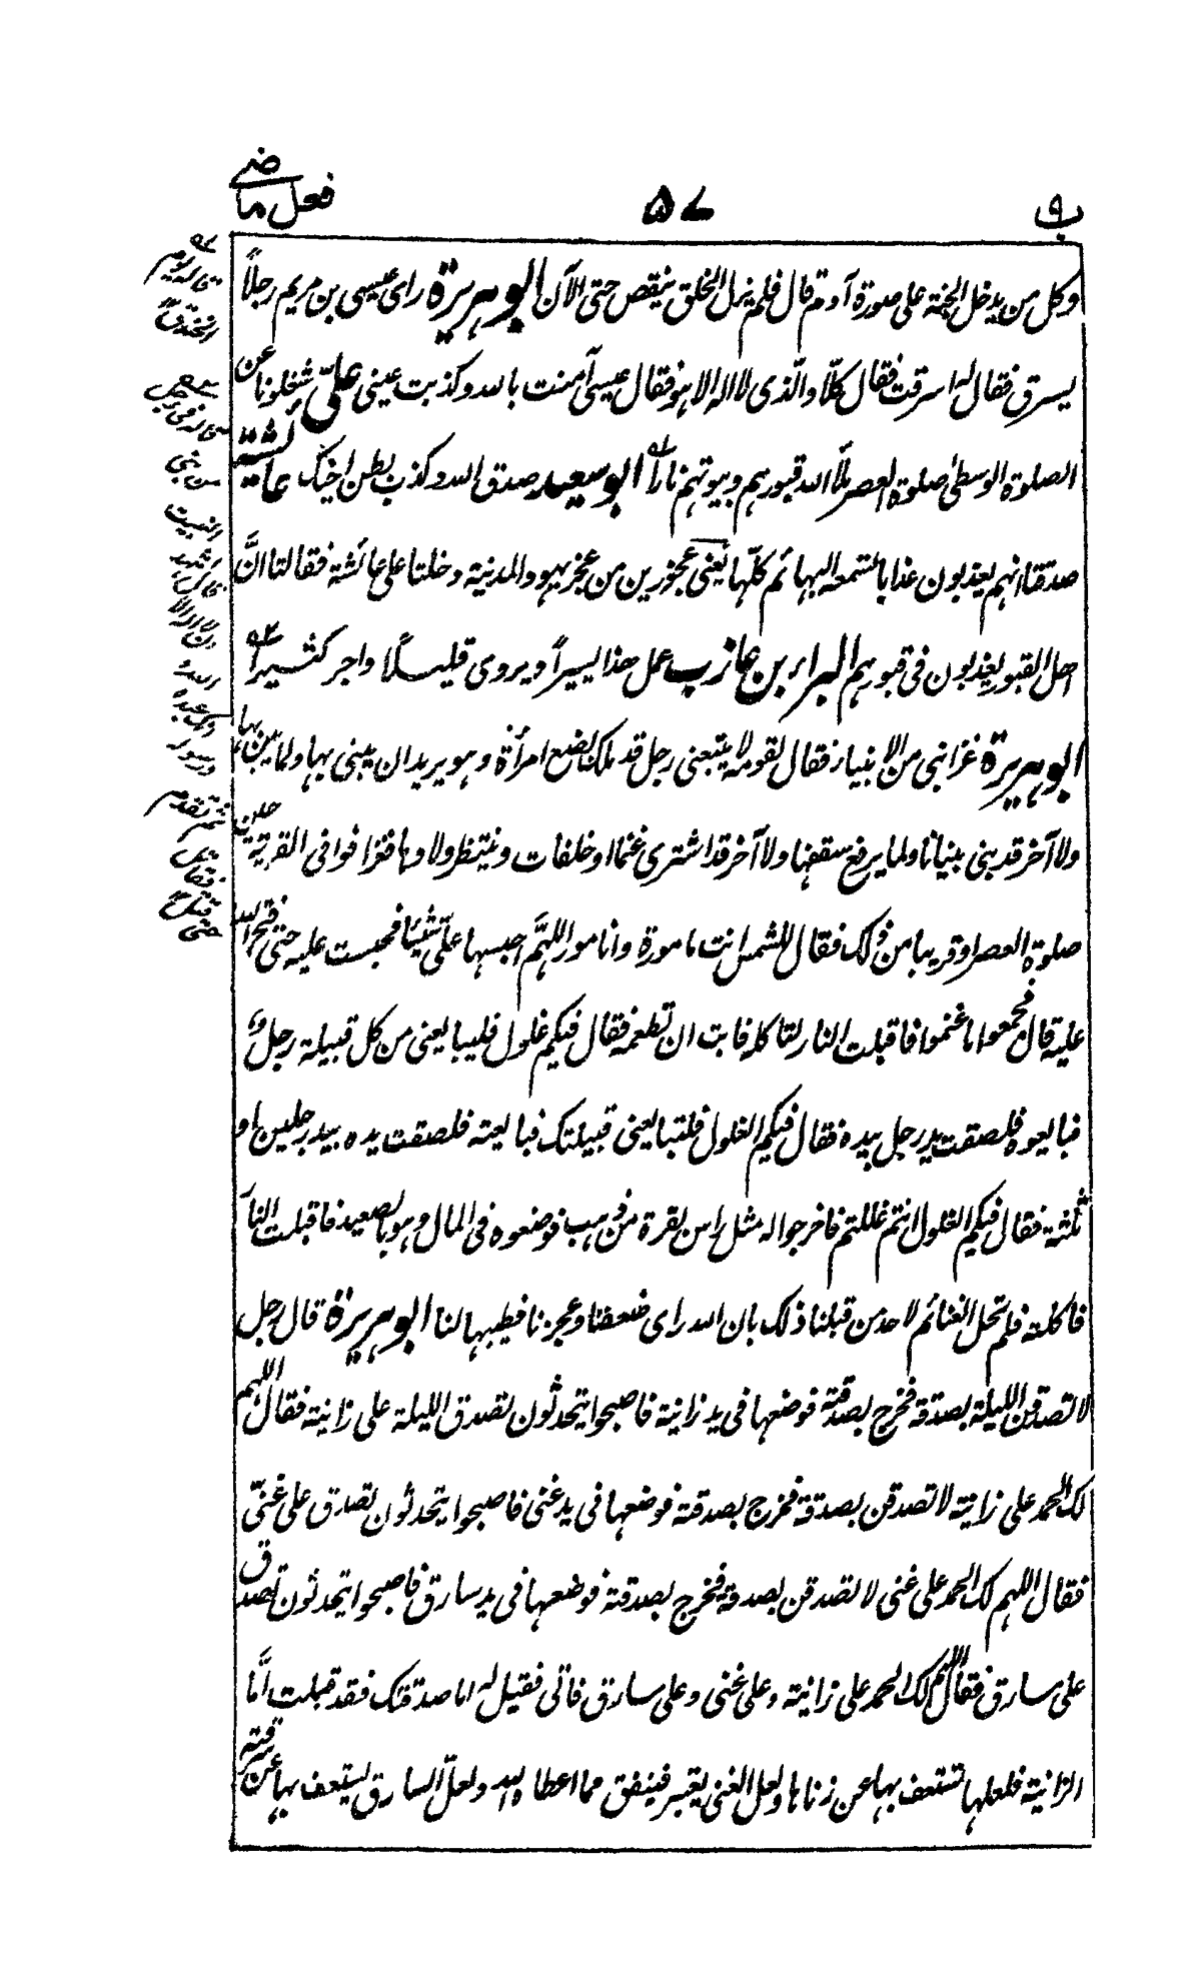 ب ٩
٥٧
فعل ماضی
وكل من يدخل الجنة على صورة آدم قال فلم يزل الخلق ينقص حتى الآن ابو هريرة راى عيسى بن مريم رجلاً
يسرق فقال له اسرقت فقال كلّا والّذى لا اله الا هو فقال عيسى آمنت بالله وكذبت عينى علىّ شغلونا عن
الصلوة الوسطى صلوة العصر ملأ الله قبورهم وبيوتهم ناراً ابو سعيد صدق الله وكذب بطن اخيك عائشة
صدقتا انهم يعذبون عذابا تسمعه البهائم كلّها يعنى عجوزين من عجز يهود المدينة دخلتا على عائشة فقالتا انَّ
اهل القبور يعذبون فى قبورهم البراء بن عازب عمل هذا يسيراً ويروى قليلاً واجر كثيراً
ابو هريرة غزا نبى من الانبياء فقال لقومه لا يتبعنى رجل قد ملك بضع امرأة وهو يريد ان يبنى بها ولما يبن بها
ولا آخر قد بنى بنيانا ولما يرفع سقفها ولا آخر قد اشترى غنما او خلفات وينتظر ولادها فغزا فدنا فى القرية حين
صلوة العصر او قريبا من ذلك فقال للشمس انت مامورة وانا مامور اللهمَّ احبسها علىّ شيئا فحبست عليه حتى فتح الله
عليه قال فجمعوا ما غنموا فاقبلت النار لتاكله فابت ان تطعمه فقال فيكم غلول فليبايعنى من كل قبيلة رجلٌ
فبايعوه فلصقت يد رجل بيده فقال فيكم الغلول فلتبايعنى قبيلتك فبايعته فلصقت يده بيد رجلين او
ثلثة فقال فيكم الغلول انتم غللتم فاخرجوا له مثل راس بقرة من ذهب فوضعوه فى المال وهو بالصعيد فاقبلت النار
فاكلته فلم تحل الغنائم لاحد من قبلنا ذلك بان الله راى ضعفنا وعجزنا فطيبها لنا ابو هريرة قال رجل
لاتصدقن الليلة بصدقة فخرج بصدقته فوضعها فى يد زانية فاصبحوا يتحدثون تصدق الليلة على زانية فقال اللهم
لك الحمد على زانية لاتصدقن بصدقة فخرج بصدقته فوضعها فى يد غنى فاصبحوا يتحدثون تصدق على غنىّ
فقال اللهم لك الحمد على غنى لاتصدقن بصدقة فخرج بصدقته فوضعها فى يد سارق فاصبحوا يتحدثون تصدق
على سارق فقال اللهم لك الحمد على زانية وعلى غنى وعلى سارق فاتى فقيل له اما صدقتك فقد قبلت امَّا
الزانية فلعلها تستعف بها عن زناها ولعل الغنى يعتبر فينفق مما اعطاه الله ولعلّ السارق يستعف بها عن سرقته
قاله يوم
الخندق
قاله فى رجل
من بنى
النبيت
ورسوله
ثم تقدم
فقاتل
حتى قتل